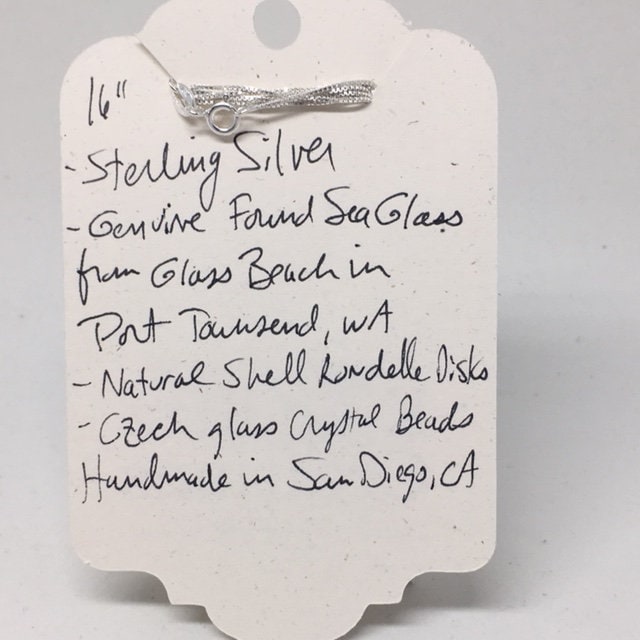 16"
- Sterling Silver
- Genuine Found Sea Glass
from Glass Beach in
Port Townsend, WA
- Natural Shell Rondelle Disks
- Czech glass Crystal Beads
Handmade in San Diego, CA